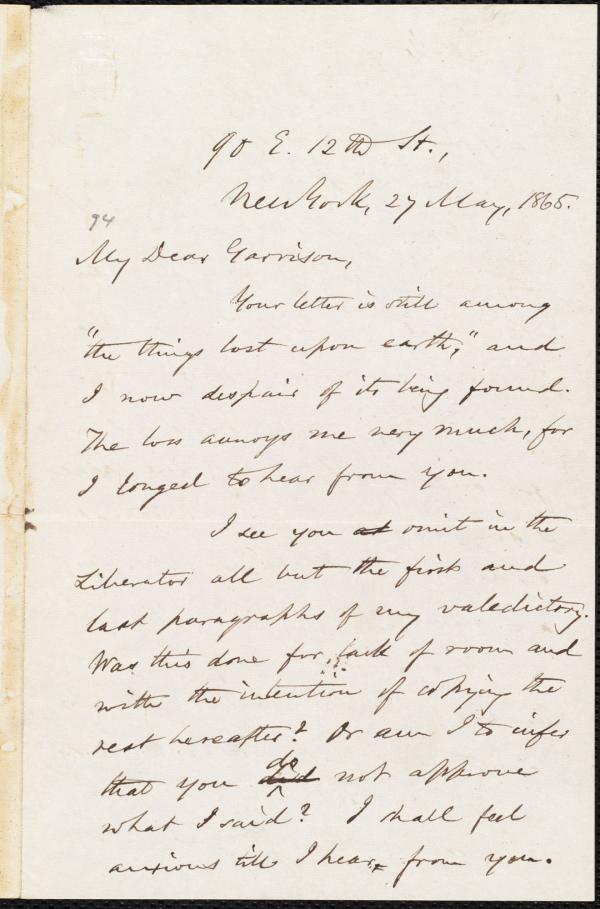 90 E. 12th St.,
New York, 27 May, 1865.
94
My Dear Garrison,
Your letter is still among
"the things lost upon earth," and
I now despair of its being found.
The loss annoys me very much, for
I longed to hear from you.
I see you at omit in the
Liberator all but the first and
last paragraphs of my valedictory.
Was this done for lack of room and
with the intention of copying the
rest hereafter? Or am I to infer
do
that you did not approve
what I said? I shall feel
anxious till I hear from you.